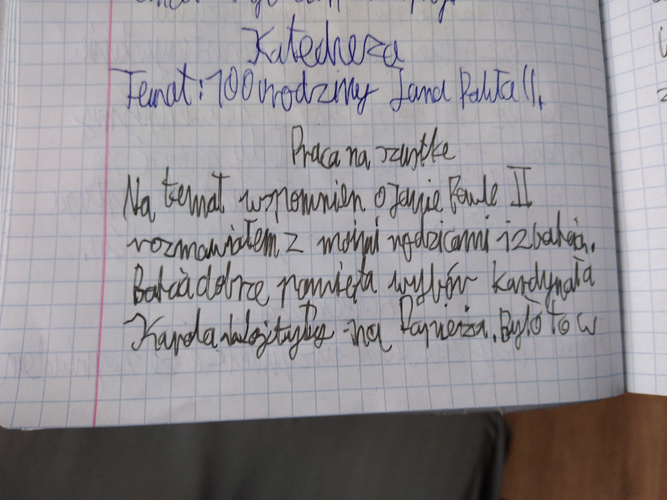 Katecheza
Temat: 100 urodziny Jana Pawła II.
Praca na rzustke
Na temat wspomnien o Janie Pawle II
rozmawiałem z moimi rodzicami i z babcią.
Babcia dobrze pamięta wybór Kardynała
Karola na Papieża. Było to w